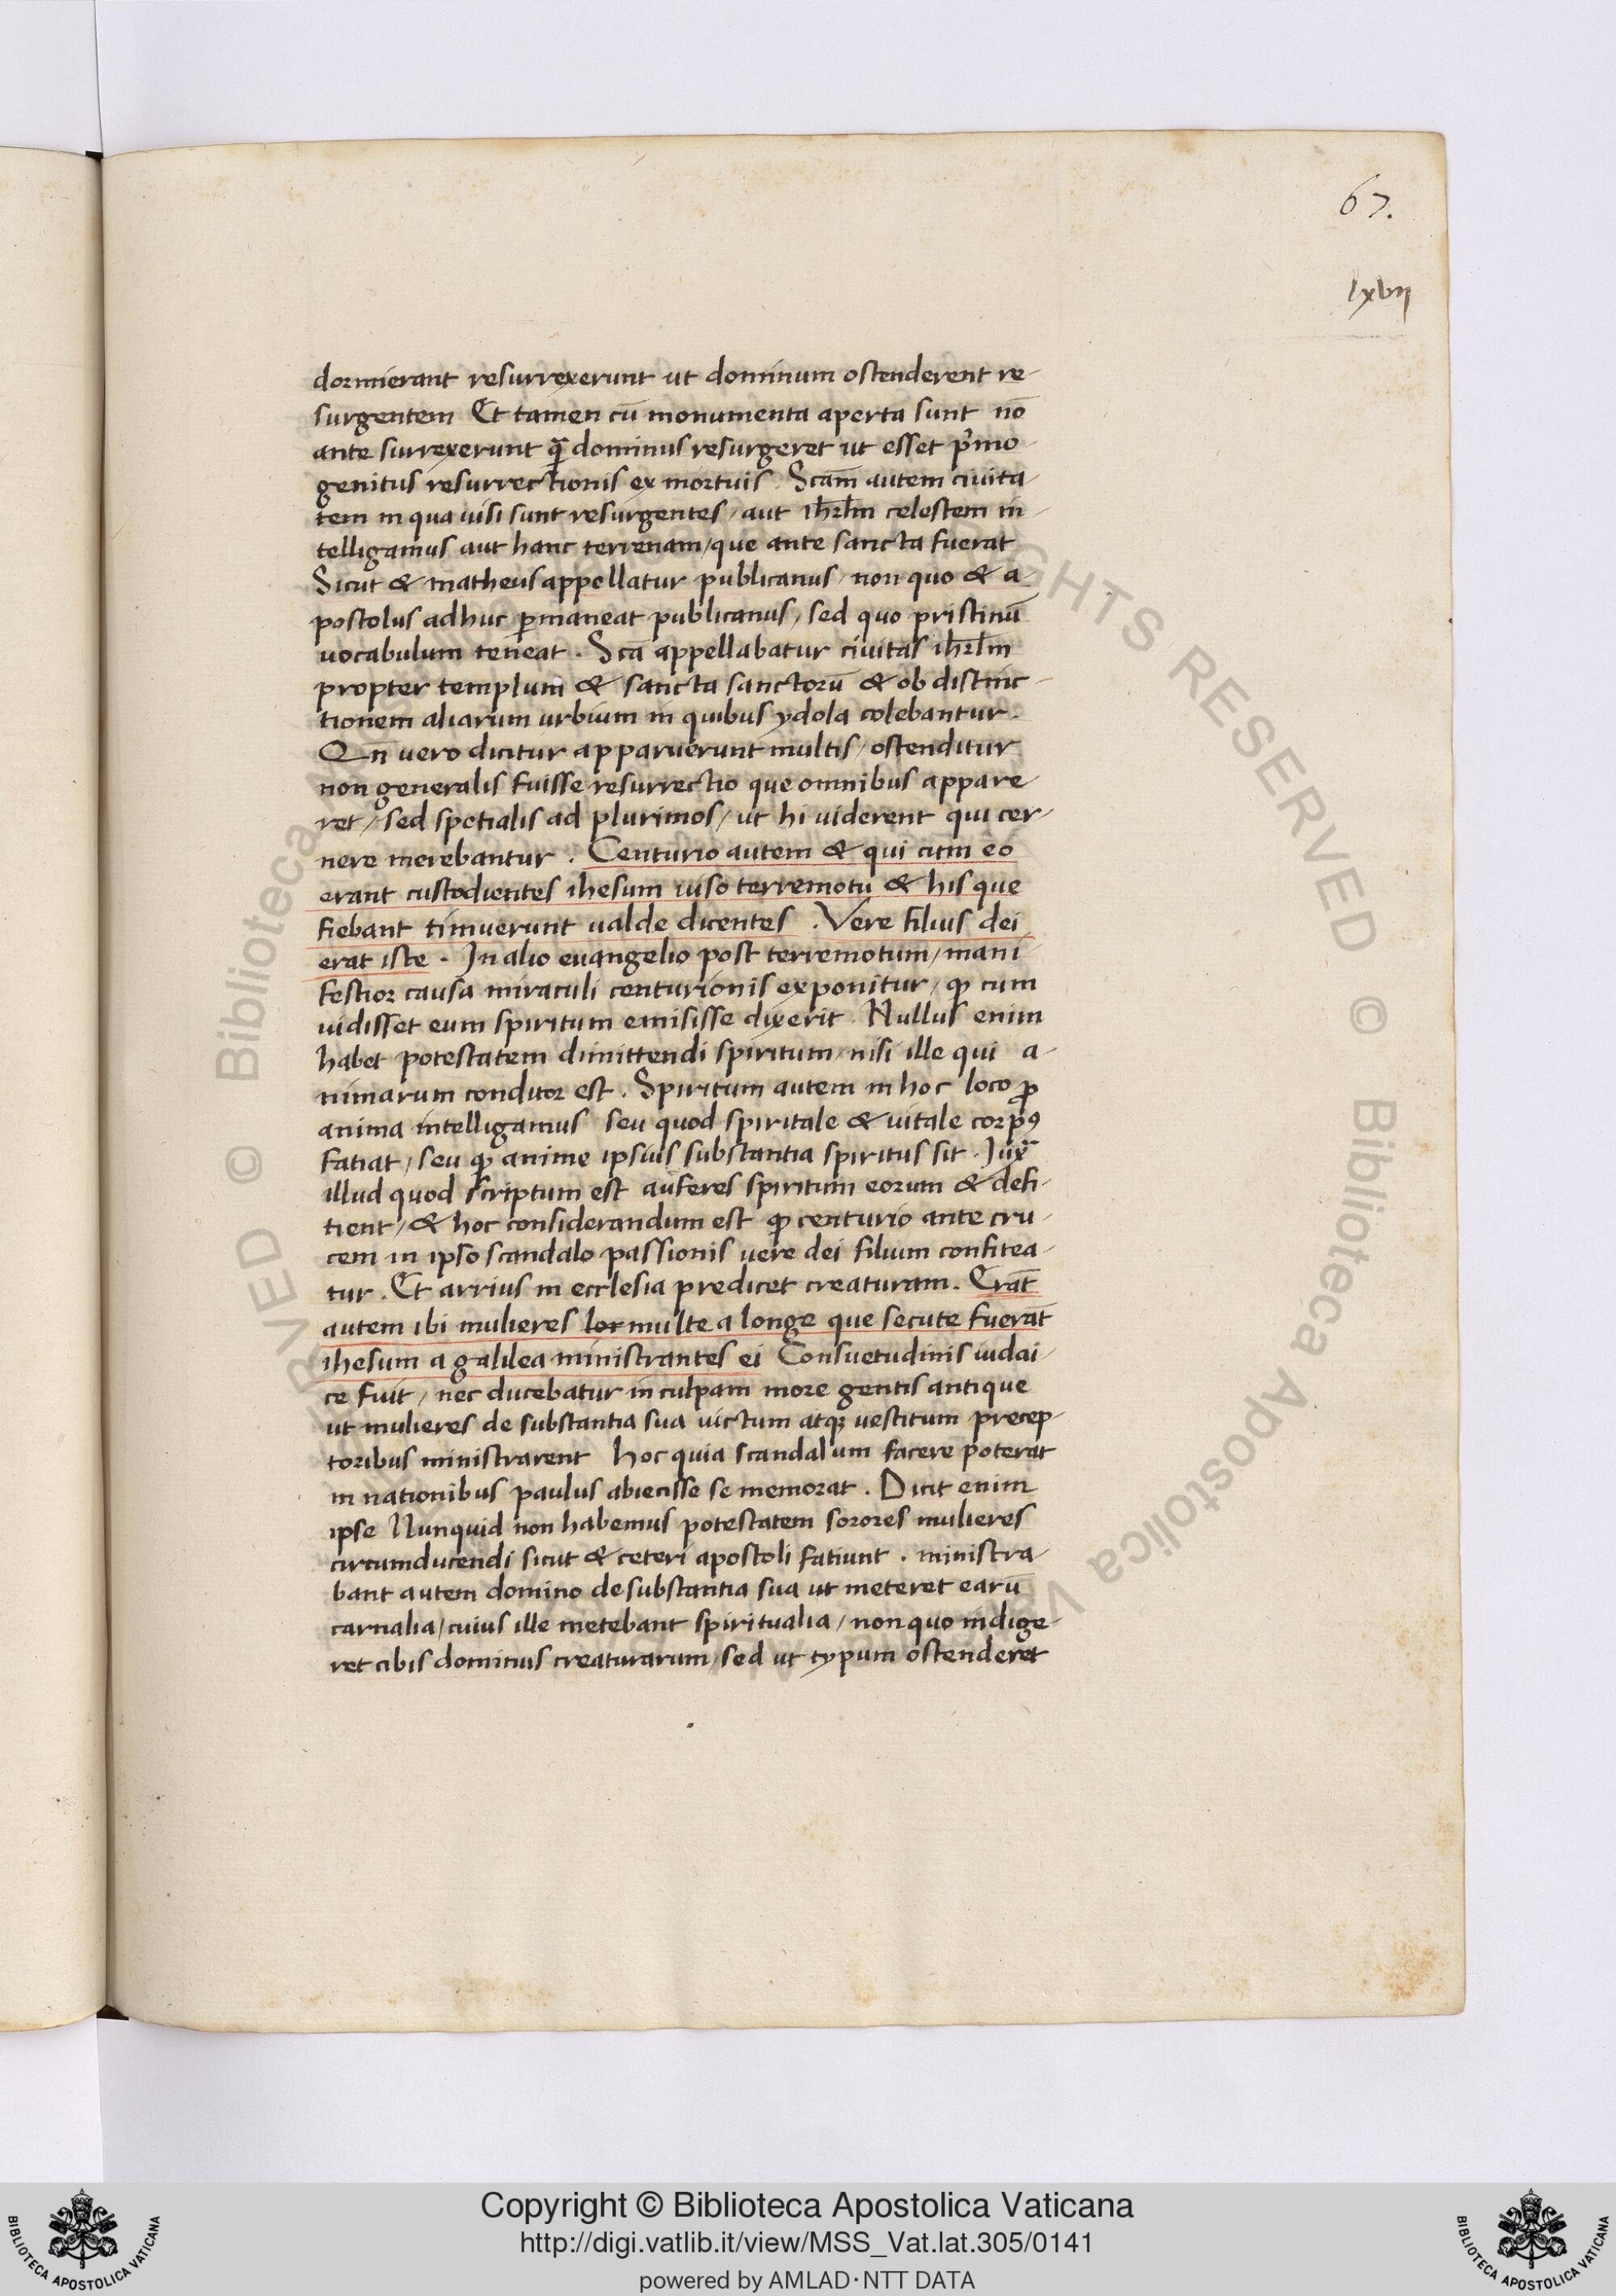 67.
lxvij
dormierant resurrexerunt ut dominum ostenderent re-
surgentem Et tamen cū monumenta aperta sunt nō
ante surrexerunt q̄ȝ dominus resurgeret ut esset p̄mo-
genitus resurrectionis ex mortuis. Scām autem civita-
tem in qua visi sunt resurgentes / aut ihrl̄m celestem in-
telligamus aut hanc terrenam / que ante sancta fuerat
Sicut & matheus appellatur publicanus / non quo & a-
postolus adhuc ꝑmaneat publicanus / sed quo pristinū
vocabulum teneat. Scā appellabatur civitas ihrl̄m
propter templum & sancta sanctorū & ob distinc-
tionem aliarum urbium in quibus ydola colebantur.
Qn̄ vero dicitur apparuerunt multis / ostenditur
non generalis fuisse resurrectio que omnibus appare-
ret / sed spetialis ad plurimos / ut hi viderent qui cer-
nere merebantur. Centurio autem & qui cum eo
erant custodientes ihesum viso terremotu & his que
fiebant timuerunt valde dicentes. Vere filius dei
erat iste. In alio evangelio post terremotum / mani-
festior causa miraculi centurionis exponitur / ꝙ cum
vidisset eum spiritum emisisse dixerit. Nullus enim
habet potestatem dimittendi spiritum / nisi ille qui a-
nimarum conditor est. Spiritum autem in hoc loco ꝓ
anima intelligamus seu quod spiritale & vitale corpꝰ
fatiat / seu ꝙ anime ipsius substantia spiritus sit. Iux̄
illud quod scriptum est auferes spiritum eorum & defi-
tient / & hoc considerandum est ꝙ centurio ante cru-
cem in ipso scandalo passionis vere dei filium confitea-
tur. Et arrius in ecclesia predicet creaturam. Erāt
autem ibi mulieres lor multe a longe que secute fuerāt
ihesum a galilea ministrantes ei Consuetudinis iudai-
ce fuit / nec ducebatur in culpam more gentis antique
ut mulieres de substantia sua victum atqȝ vestitum precep-
toribus ministrarent hoc quia scandalum facere poterat
in nationibus paulus abiecisse se memorat. Dicit enim
ipse Nunquid non habemus potestatem sorores mulieres
circumducendi sicut & ceteri apostoli fatiunt. ministra-
bant autem domino de substantia sua ut meteret earū
carnalia / cuius ille metebant spiritualia / non quo indige-
ret cibis dominus creaturarum / sed ut typum ostenderet
© Biblioteca Apostolica Vaticana ALL RIGHTS RESERVED
Copyright © Biblioteca Apostolica Vaticana
http://digi.vatlib.it/view/MSS_Vat.lat.305/0141
powered by AMLAD·NTT DATA
BIBLIOTECA APOSTOLICA VATICANA
BIBLIOTECA APOSTOLICA VATICANA